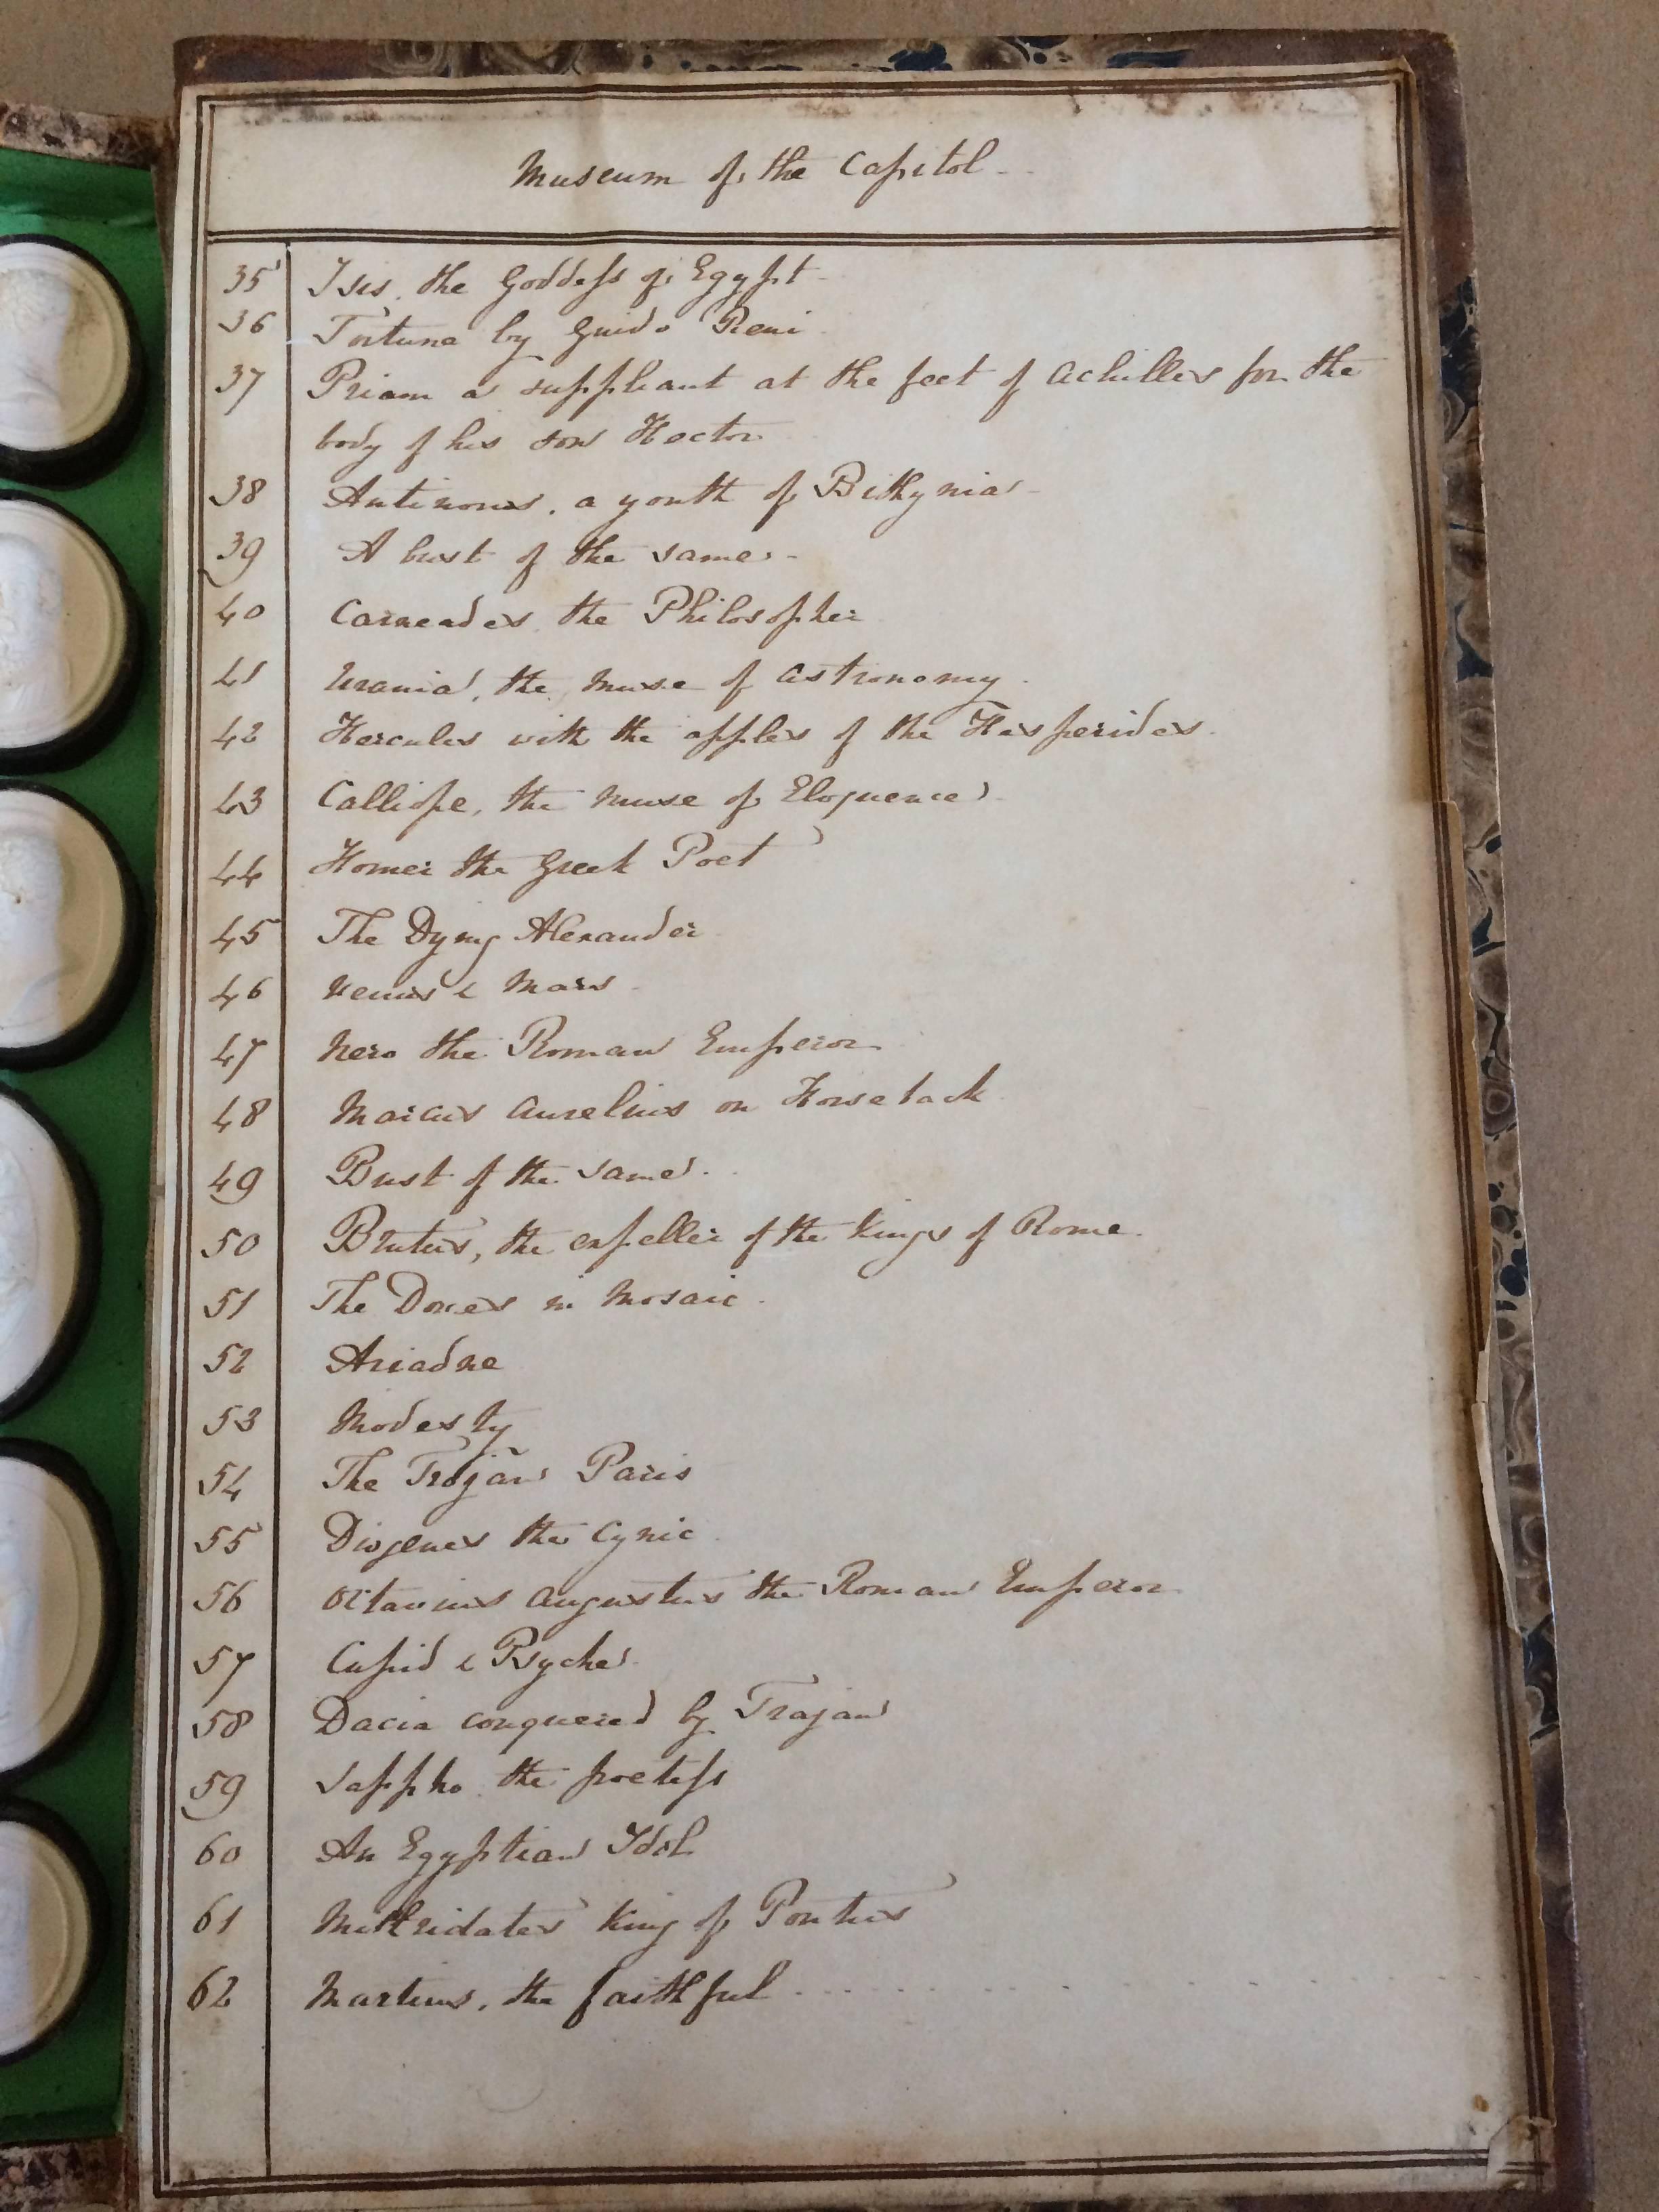 Museum of the Capitol
35 Isis, the Goddess of Egypt
36 Fortuna by Guido Reni
37 Priam a suppliant at the feet of Achilles for the
body of his son Hector
38 Antinous, a youth of Bithynia
39 A bust of the same
40 Carneades the Philosopher
41 Urania, the Muse of Astronomy
42 Hercules with the apples of the Hesperides
43 Calliope, the Muse of Eloquence
44 Homer the Greek Poet
45 The Dying Alexander
46 Venus & Mars
47 Nero the Roman Emperor
48 Marcus Aurelius on Horseback
49 Bust of the same
50 Brutus, the expeller of the Kings of Rome
51 The Doves in Mosaic
52 Ariadne
53 Modesty
54 The Trojan Paris
55 Diogenes the Cynic
56 Octavius Augustus the Roman Emperor
57 Cupid & Psyche
58 Dacia conquered by Trajan
59 Sappho the poetess
60 An Egyptian Idol
61 Mithridates King of Pontus
62 Martius, the faithful